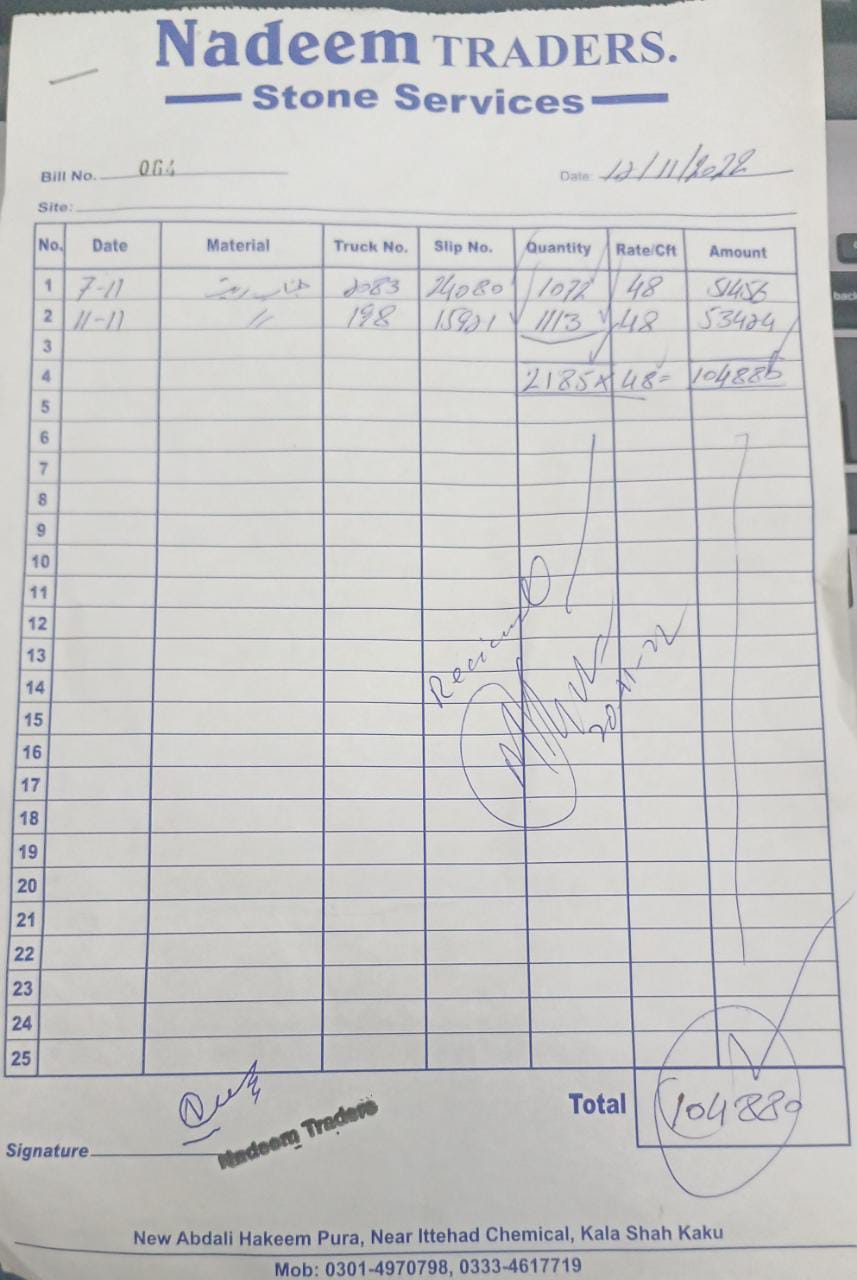 Nadeem TRADERS.
Stone Services
Bill No. 064
Date: 12/11/2022
Site:
No. Date Material Truck No. Slip No. Quantity Rate/Cft Amount
1 7-11 چناب ریت 2083 24080 1072 48 51456
2 11-11 // 198 15921 1113 48 53424
3
4 2185 x 48 = 104880
5
6
7
8
9
10
11
12
13
14
15
16
17
18
19
20
21
22
23
24
25
20-11-22
Total 104880
Signature
Nadeem Traders
New Abdali Hakeem Pura, Near Ittehad Chemical, Kala Shah Kaku
Mob: 0301-4970798, 0333-4617719